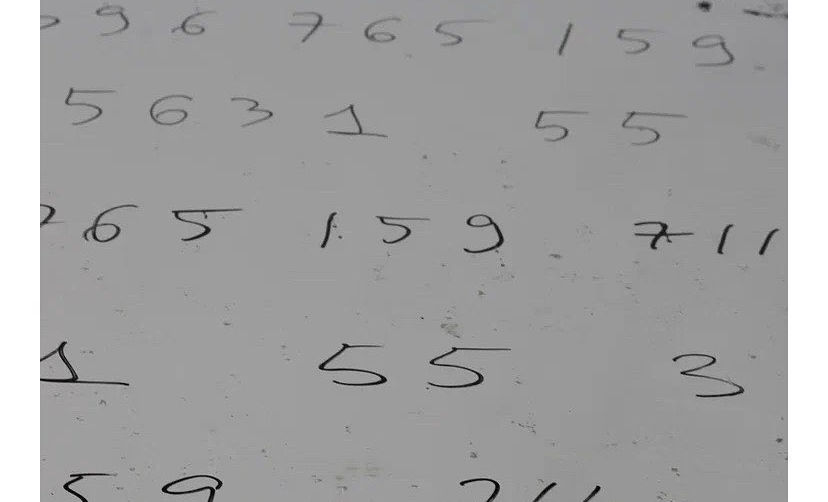 9 6 7 6 5 1 5 9
5 6 3 1 5 5
6 5 1 5 9 7 1 1
1 5 5 3
5 9 7 1 1